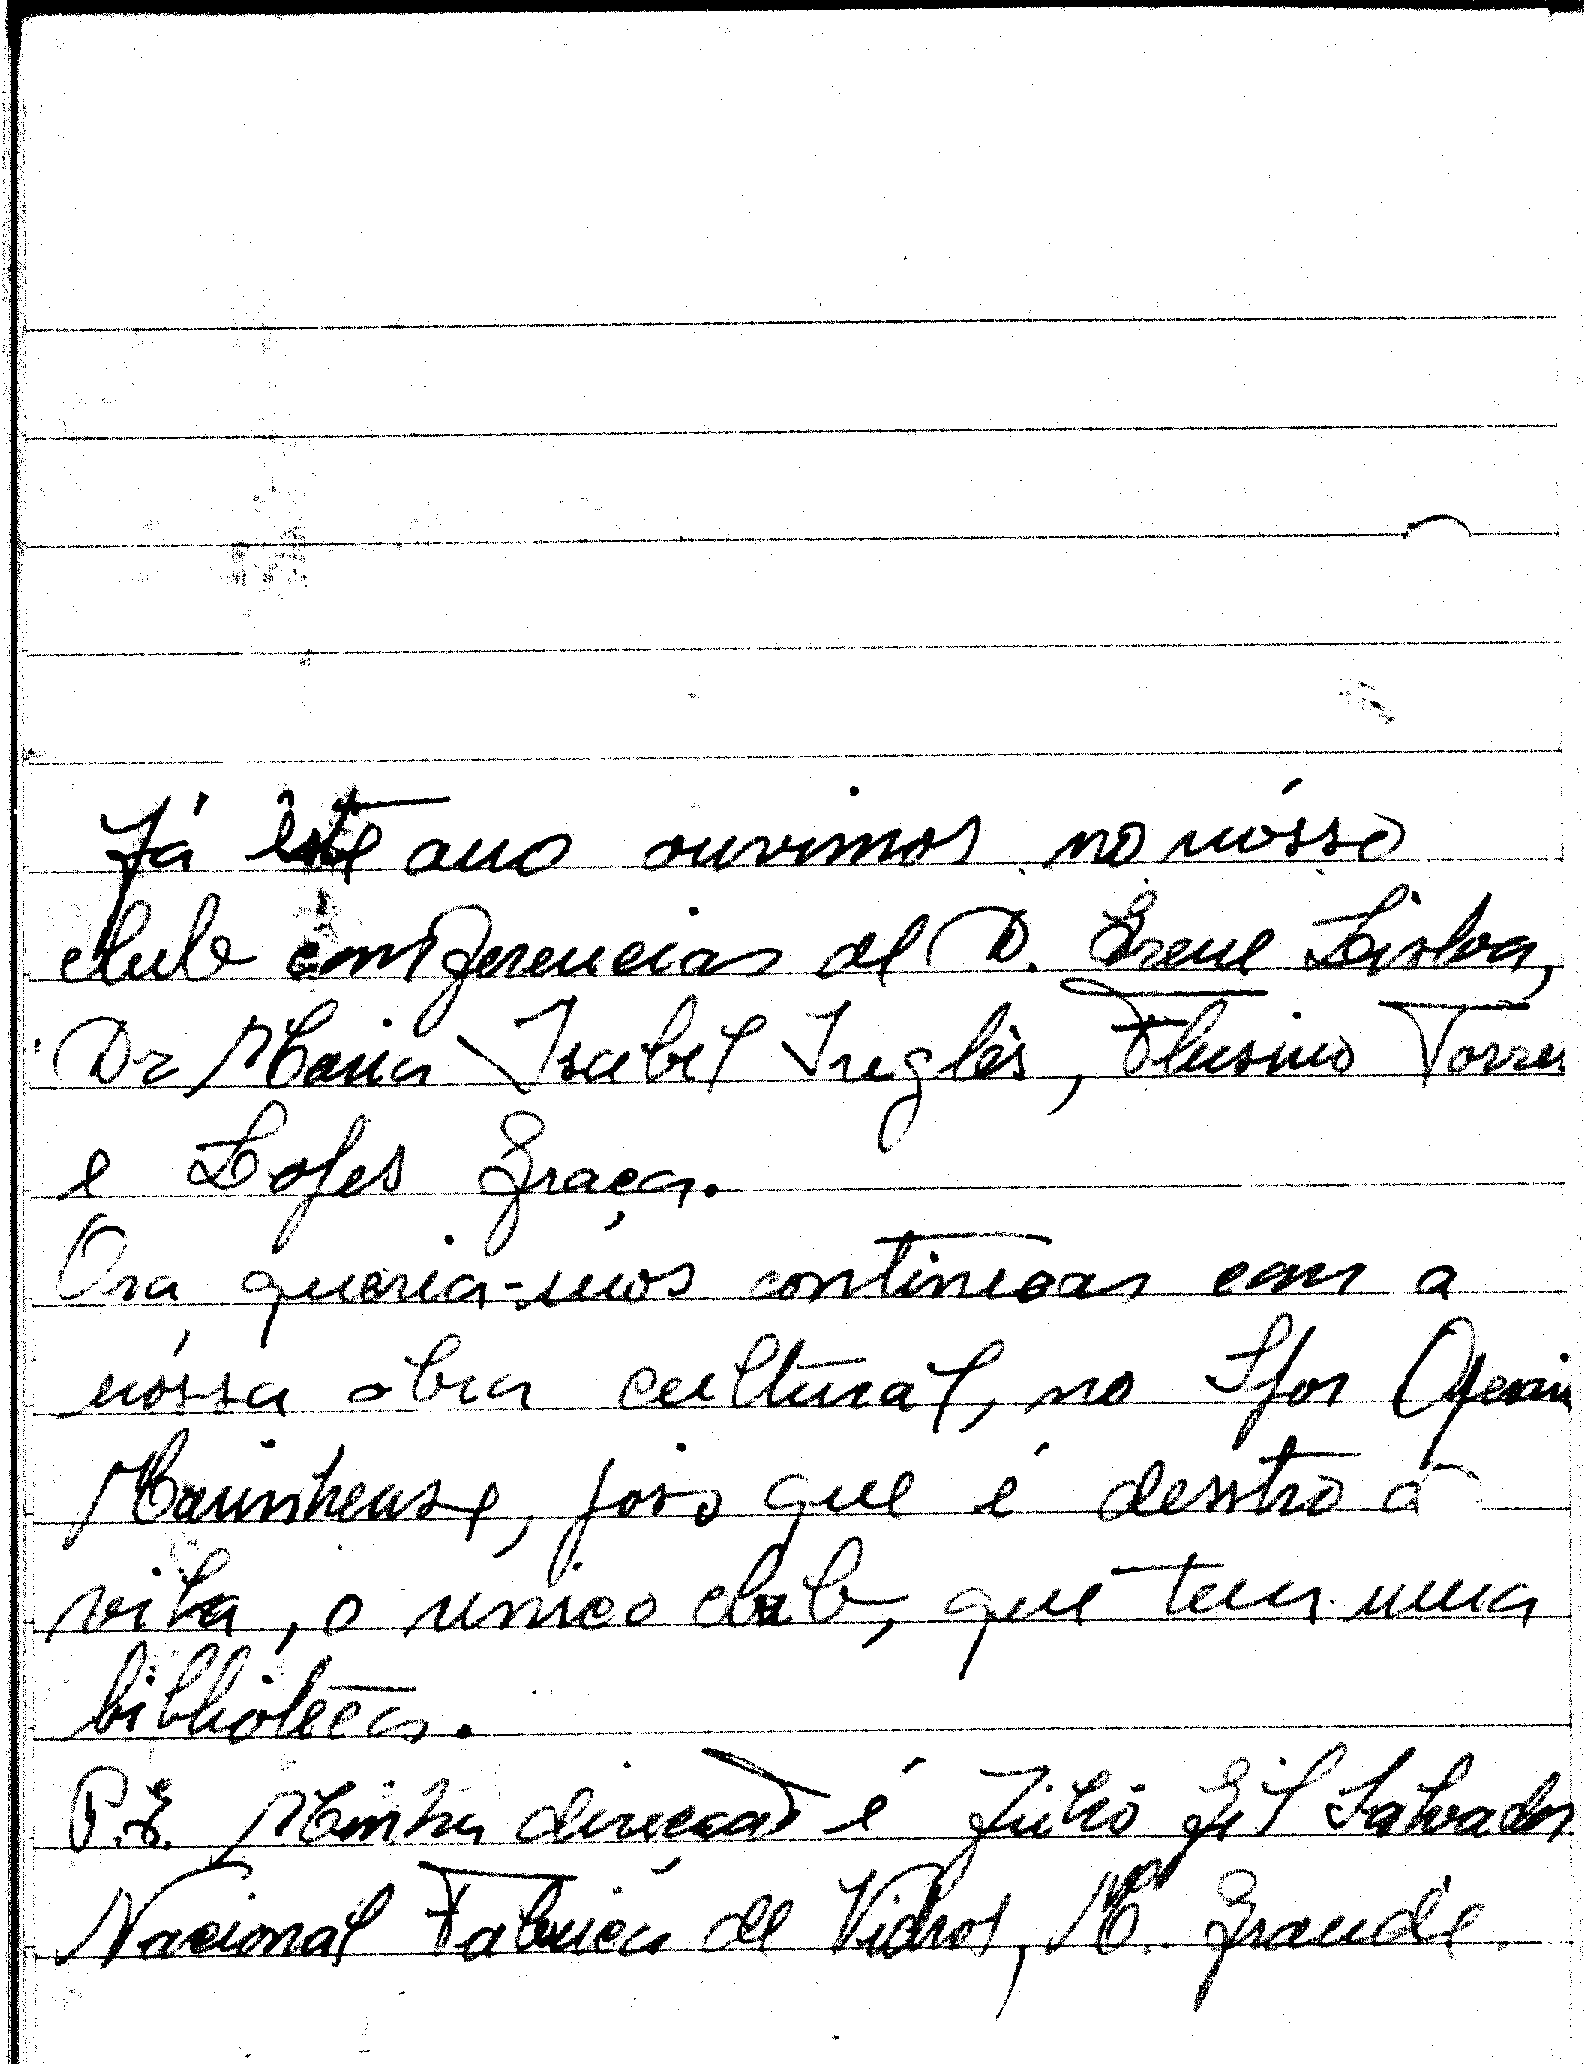 Já êste ano ouvimos no nósso
club conferencias de D. Irene Lisboa,
Dr Maria Isabel Inglês, Flusino Torres
e Lopes Graça.
Ora queria-mos continuar com a
nóssa obra cultural, no Spor Operari
Marinhense, pois que é dentro a
vila, o unico club, que tem uma
biblioteca.
P.S. Minha direcçaõ é Julio Gil Salvador
Nacional Fabrica de Vidros, M. Grande.